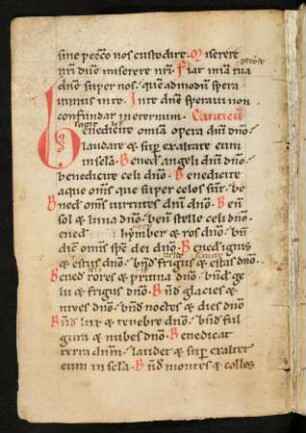 sine pecco nos custodire. Miserere
nri dne miserere nri. Fiat mia tua
dne super nos. quēadmodū spera
uimus in te. In te dne speraui non
confundar in eternum. Canticū
Benedicite omīa opera dnī dnō.
laudate & sup exaltate eum
in scla. Bened angeli dnī dnō.
benedicite celi dnō. Benedicite
aque omīs que super celos sūt. be
Bned omīs uirtutes dnī dnō. Ben
sol & luna dnō. ben stelle celi dnō.
ened hymber & ros dnō. bn
dic omīs sps dei dnō. Bened ignis
& estus dnō. bnd frigus & estas dnō.
Bened rores & pruina dnō. bnd ge
lu & frigus dnō. Bnd glacies &
niues dnō. bnd noctes & dies dnō
Bnd lux & tenebre dnō. bnd ful
gura & nubes dnō. Benedicat
terra dnm. laudet & sup exaltet
eum in scla. Bnd montes & colles